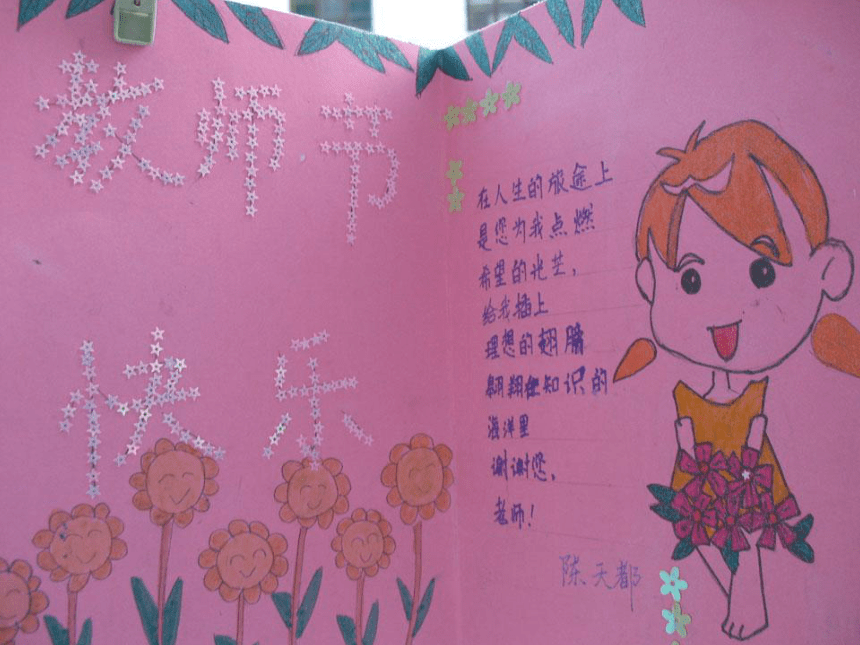 教师节
快乐
在人生的旅途上
是您为我点燃
希望的光芒，
给我插上
理想的翅膀
翱翔在知识的
海洋里
谢谢您，
老师！
陈天都